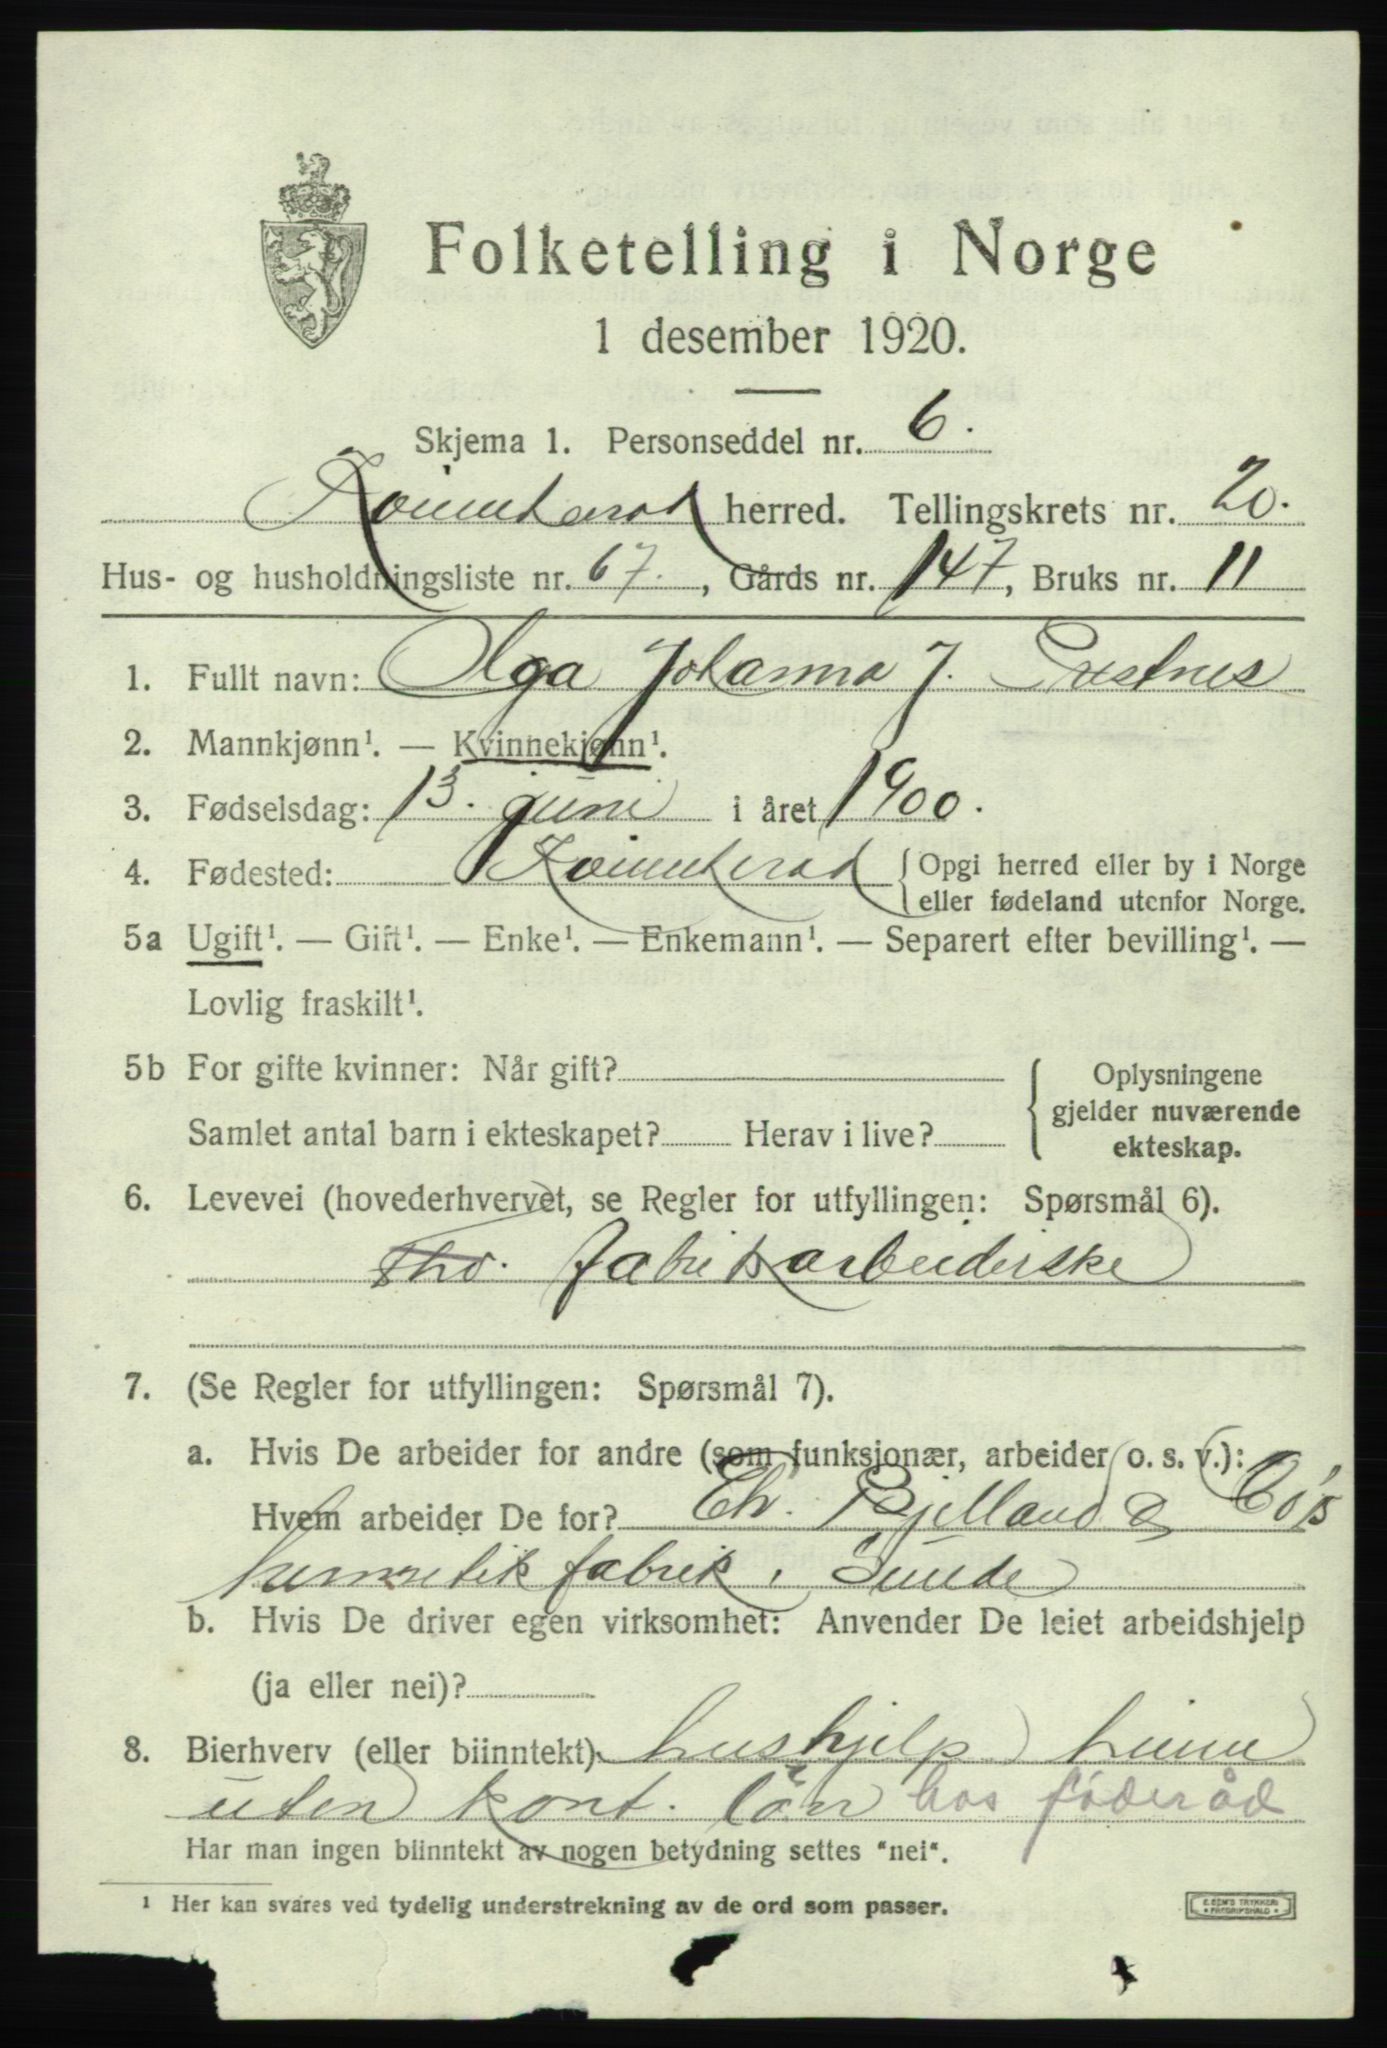 Folketelling i Norge
1 desember 1920.
Skjema 1. Personseddel nr. 6.
Kvinnherad herred. Tellingskrets nr. 20.
Hus- og husholdningsliste nr. 67. , Gårds nr. 147, Bruks nr. 11
1. Fullt navn: Olga Johanna J. Prestnes
2. Mannkjønn¹. — Kvinnekjønn¹.
3. Fødselsdag: 13. juni i året 1900.
4. Fødested: Kvinnherad { Opgi herred eller by i Norge
eller fødeland utenfor Norge.
5a Ugift¹. — Gift¹. — Enke¹. — Enkemann¹. — Separert efter bevilling¹. —
Lovlig fraskilt¹.
5b For gifte kvinner: Når gift? { Oplysningene
gjelder nuværende
Samlet antal barn i ekteskapet? Herav i live? ekteskap.
6. Levevei (hovederhvervet, se Regler for utfyllingen: Spørsmål 6).
fabrikarbeiderske
7. (Se Regler for utfyllingen: Spørsmål 7).
a. Hvis De arbeider for andre (som funksjonær, arbeider o. s. v.):
Hvem arbeider De for? Ch. Bjelland & Co's
hermetikfabrik, Sunde
b. Hvis De driver egen virksomhet: Anvender De leiet arbeidshjelp
(ja eller nei)?
8. Bierhverv (eller biinntekt) hushjelp hime
uten kont. lön hos föderåd
Har man ingen biinntekt av nogen betydning settes "nei".
¹ Her kan svares ved tydelig understrekning av de ord som passer.
E. SEM'S TRYKKERI
FREDRIKSHALD